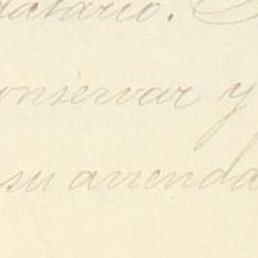 datario.
onservar y
su arrenda